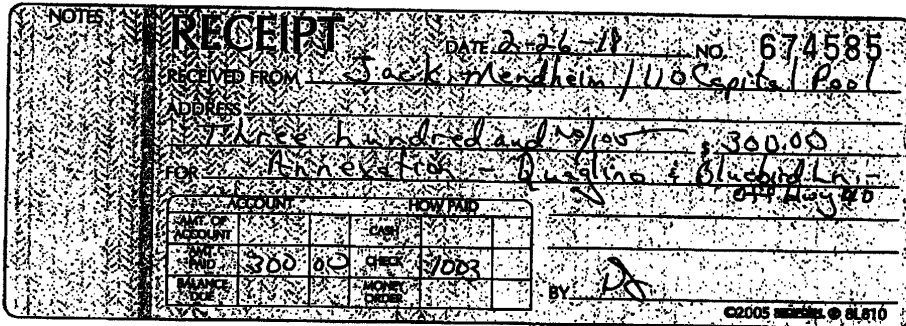 NOTES
RECEIPT DATE 2-26-18 NO. 674585
RECEIVED FROM Jack Mendheim / 110 Capital Pool
ADDRESS
Three hundred and no/100 $ 300.00
FOR Annexation - Quaglino & Bluebird Ln. -
off Hwy 40
ACCOUNT HOW PAID
AMT. OF ACCOUNT CASH
AMT. PAID 300 00 CHECK 1003
BALANCE DUE MONEY ORDER
BY
©2005 ® 8L810